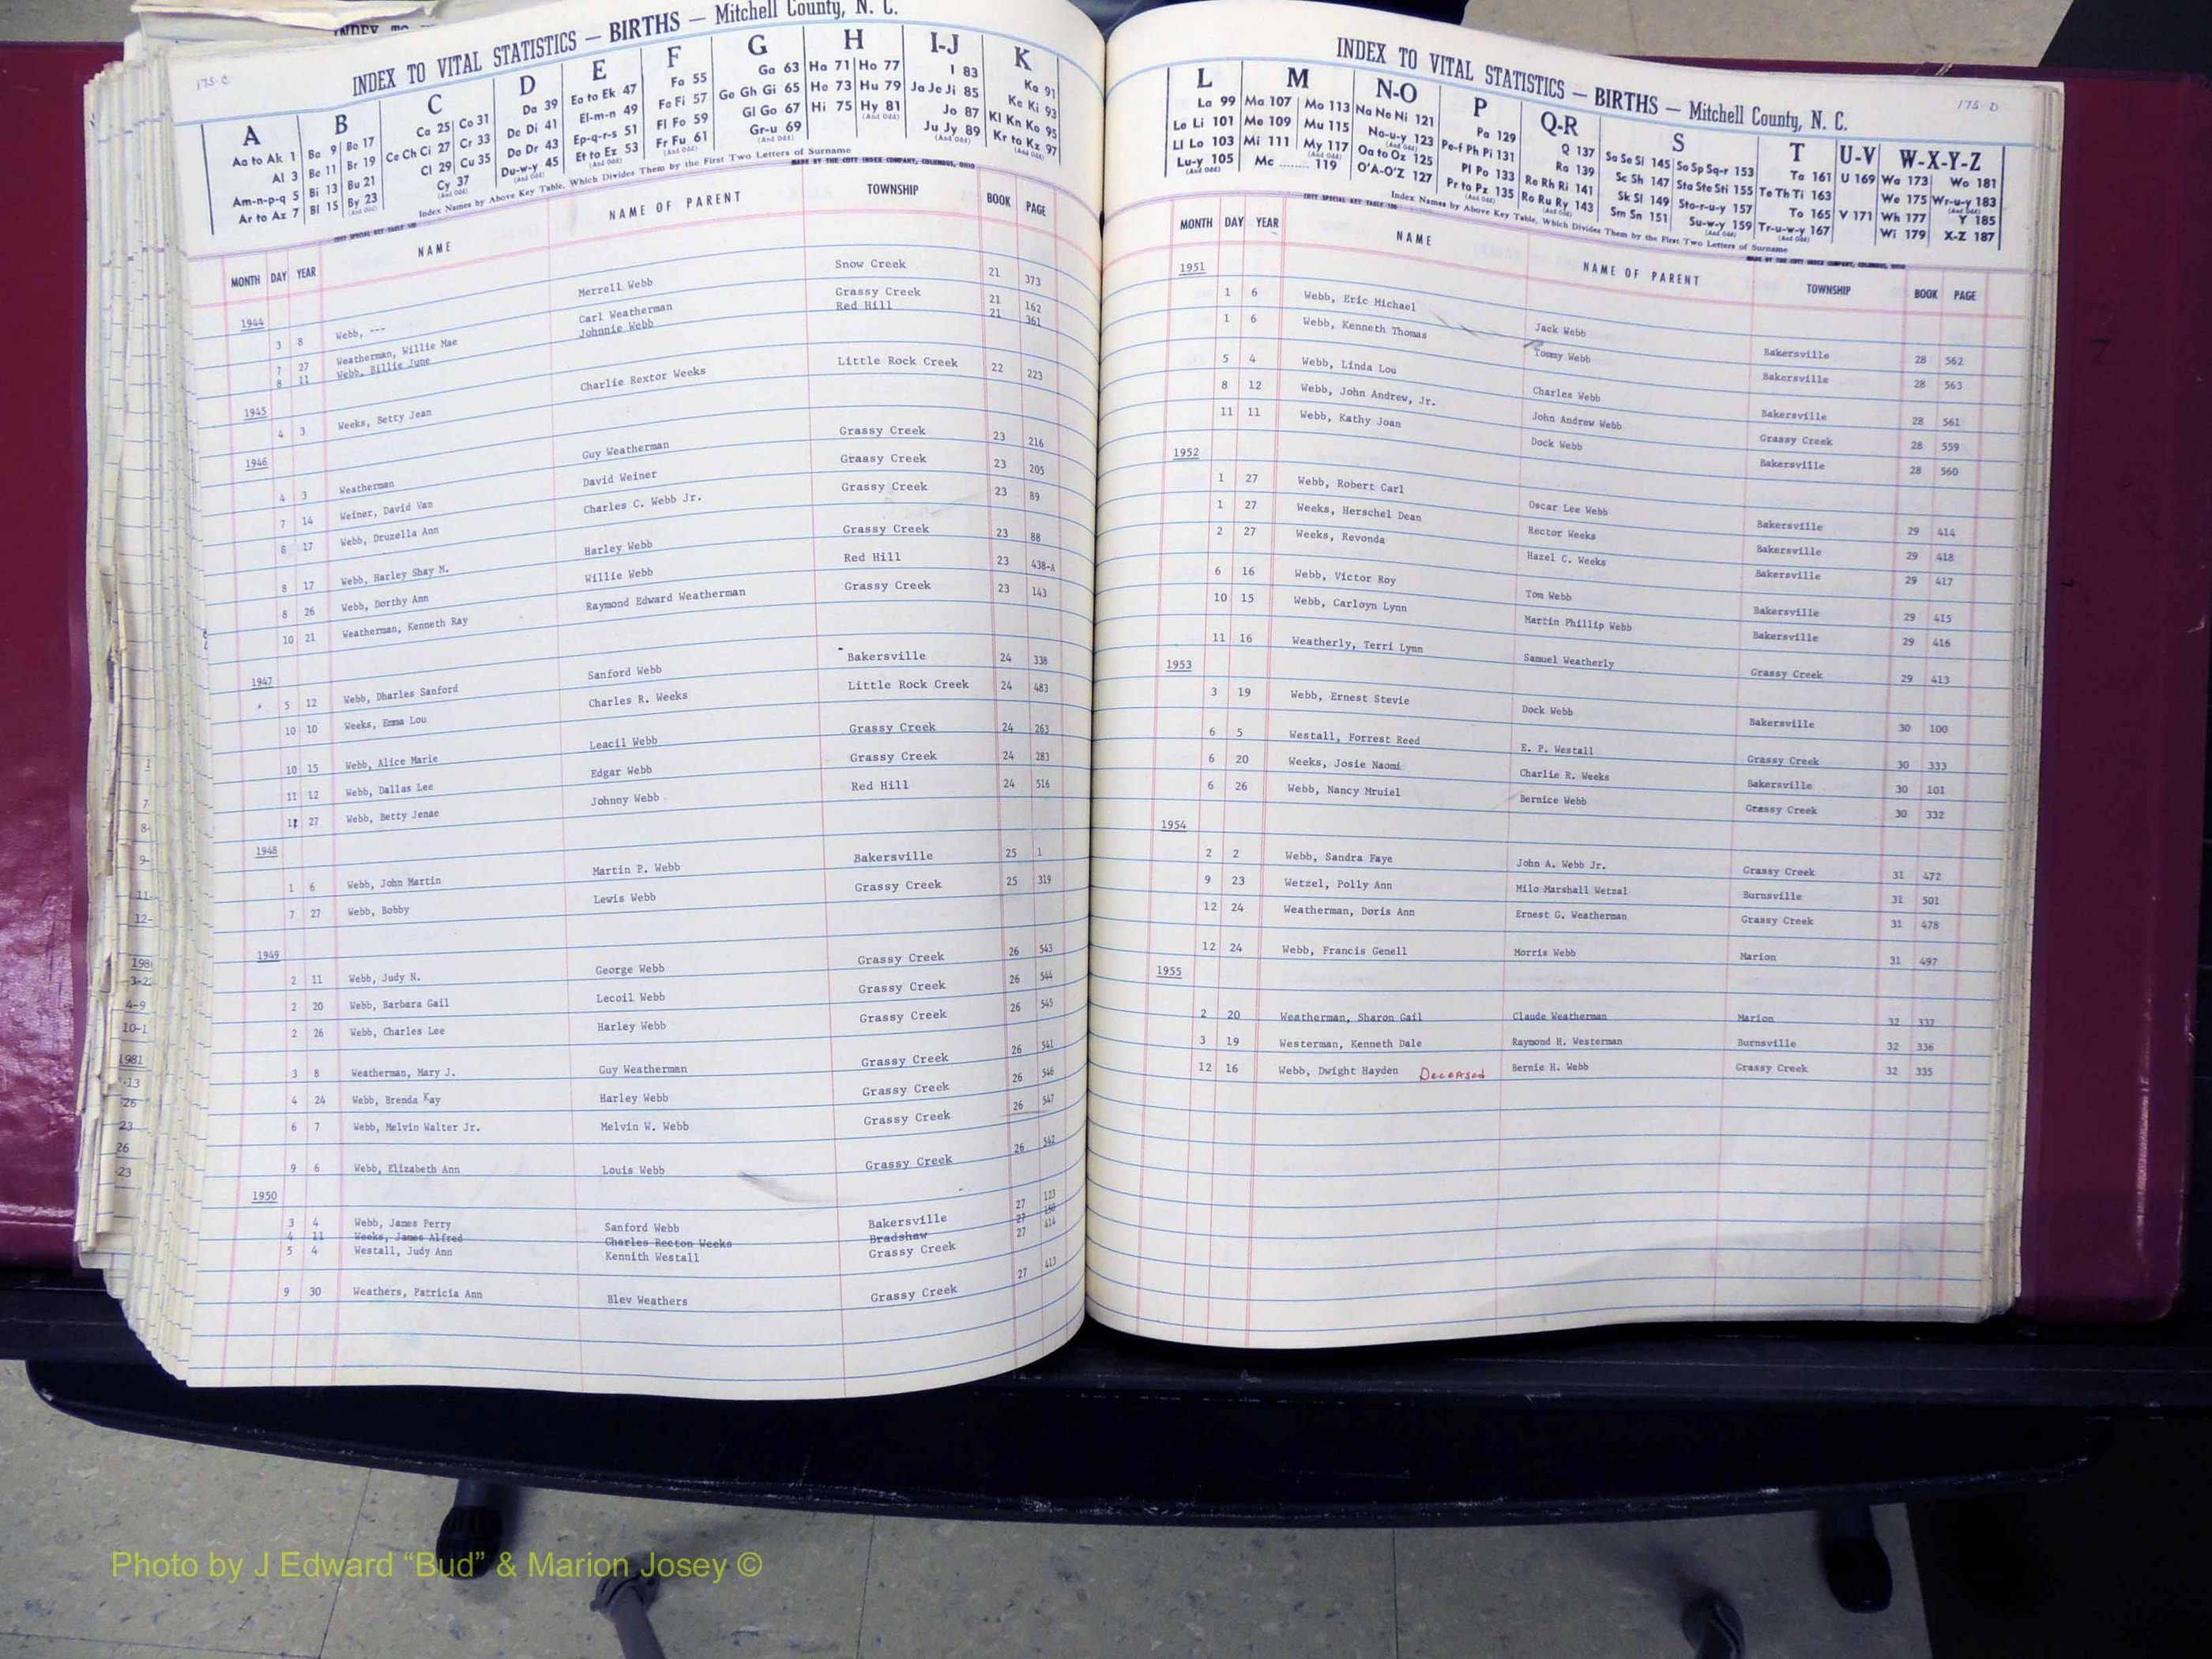 INDEX TO
175-C
INDEX TO VITAL STATISTICS — BIRTHS — Mitchell County, N. C.
A B C D E F G H I-J K
Aa to Ak 1 Ba 9 Bo 17 Ca 25 Co 31 Da 39 Ea to Ek 47 Fa 55 Ga 63 Ha 71 Ho 77 I 83 Ka 91
Al 3 Be 11 Br 19 Ce Ch Ci 27 Cr 33 De Di 41 El-m-n 49 Fe Fi 57 Ge Gh Gi 65 He 73 Hu 79 Ja Je Ji 85 Ke Ki 93
Am-n-p-q 5 Bi 13 Bu 21 Cl 29 Cu 35 Do Dr 43 Ep-q-r-s 51 Fl Fo 59 Gl Go 67 Hi 75 Hy 81 (And Odd) Jo 87 Kl Kn Ko 95
Ar to Az 7 Bl 15 By 23 (And Odd) Cy 37 (And Odd) Du-w-y 45 (And Odd) Et to Ez 53 (And Odd) Fr Fu 61 (And Odd) Gr-u 69 (And Odd) Ju Jy 89 (And Odd) Kr to Kz 97 (And Odd)
Index Names by Above Key Table, Which Divides Them by the First Two Letters of Surname
COTT SPECIAL KEY TABLE 100 MADE BY THE COTT INDEX COMPANY, COLUMBUS, OHIO
MONTH DAY YEAR NAME NAME OF PARENT TOWNSHIP BOOK PAGE
1944
3 8 Webb, --- Merrell Webb Snow Creek 21 373
7 27 Weatherman, Willie Mae Carl Weatherman Grassy Creek 21 162
8 11 Webb, Billie June Johnnie Webb Red Hill 21 361
1945
4 3 Weeks, Betty Jean Charlie Rextor Weeks Little Rock Creek 22 223
1946
4 3 Weatherman Guy Weatherman Grassy Creek 23 216
7 14 Weiner, David Van David Weiner Graasy Creek 23 205
8 17 Webb, Druzella Ann Charles C. Webb Jr. Grassy Creek 23 89
8 17 Webb, Harley Shay M. Harley Webb Grassy Creek 23 88
8 26 Webb, Dorthy Ann Willie Webb Red Hill 23 438-A
10 21 Weatherman, Kenneth Ray Raymond Edward Weatherman Grassy Creek 23 143
1947
5 12 Webb, Dharles Sanford Sanford Webb Bakersville 24 338
10 10 Weeks, Emma Lou Charles R. Weeks Little Rock Creek 24 483
10 15 Webb, Alice Marie Leacil Webb Grassy Creek 24 263
11 12 Webb, Dallas Lee Edgar Webb Grassy Creek 24 283
27 Webb, Betty Jenae Johnny Webb Red Hill 24 516
1948
1 6 Webb, John Martin Martin P. Webb Bakersville 25 1
7 27 Webb, Bobby Lewis Webb Grassy Creek 25 319
1949
2 11 Webb, Judy N. George Webb Grassy Creek 26 543
2 20 Webb, Barbara Gail Lecoil Webb Grassy Creek 26 544
2 26 Webb, Charles Lee Harley Webb Grassy Creek 26 545
3 8 Weatherman, Mary J. Guy Weatherman Grassy Creek 26 541
4 24 Webb, Brenda Kay Harley Webb Grassy Creek 26 546
6 7 Webb, Melvin Walter Jr. Melvin W. Webb Grassy Creek 26 547
9 6 Webb, Elizabeth Ann Louis Webb Grassy Creek 26 542
1950
3 4 Webb, James Perry Sanford Webb Bakersville 27 123
4 11 Weeks, James Alfred Charles Recton Weeks Bradshaw 27
5 4 Westall, Judy Ann Kennith Westall Grassy Creek 27 414
9 30 Weathers, Patricia Ann Blev Weathers Grassy Creek 27 413
175-D
INDEX TO VITAL STATISTICS — BIRTHS — Mitchell County, N. C.
L M N-O P Q-R S T U-V W-X-Y-Z
La 99 Ma 107 Mo 113 Na Ne Ni 121 Pa 129 Q 137 Sa Se Si 145 So Sp Sq-r 153 Ta 161 U 169 Wa 173 Wo 181
Le Li 101 Me 109 Mu 115 No-u-y 123 (And Odd) Pe-f Ph Pi 131 Ra 139 Sc Sh 147 Sta Ste Sti 155 Te Th Ti 163 We 175 Wr-u-y 183 (And Odd)
Ll Lo 103 Mi 111 My 117 (And Odd) Oa to Oz 125 Pl Po 133 Re Rh Ri 141 Sk Sl 149 Sto-r-u-y 157 To 165 V 171 Wh 177 Y 185
Lu-y 105 (And Odd) Mc ........ 119 O'A-O'Z 127 Pr to Pz 135 (And Odd) Ro Ru Ry 143 (And Odd) Sm Sn 151 Su-w-y 159 (And Odd) Tr-u-w-y 167 (And Odd) Wi 179 X-Z 187
Index Names by Above Key Table, Which Divides Them by the First Two Letters of Surname
COTT SPECIAL KEY TABLE 100 MADE BY THE COTT INDEX COMPANY, COLUMBUS, OHIO
MONTH DAY YEAR NAME NAME OF PARENT TOWNSHIP BOOK PAGE
1951
1 6 Webb, Eric Michael Jack Webb Bakersville 28 562
1 6 Webb, Kenneth Thomas Tommy Webb Bakersville 28 563
5 4 Webb, Linda Lou Charles Webb Bakersville 28 561
8 12 Webb, John Andrew, Jr. John Andrew Webb Grassy Creek 28 559
11 11 Webb, Kathy Joan Dock Webb Bakersville 28 560
1952
1 27 Webb, Robert Carl Oscar Lee Webb Bakersville 29 414
1 27 Weeks, Herschel Dean Rector Weeks Bakersville 29 418
2 27 Weeks, Revonda Hazel C. Weeks Bakersville 29 417
6 16 Webb, Victor Roy Tom Webb Bakersville 29 415
10 15 Webb, Carloyn Lynn Martin Phillip Webb Bakersville 29 416
11 16 Weatherly, Terri Lynn Samuel Weatherly Grassy Creek 29 413
1953
3 19 Webb, Ernest Stevie Dock Webb Bakersville 30 100
6 5 Westall, Forrest Reed E. P. Westall Grassy Creek 30 333
6 20 Weeks, Josie Naomi Charlie R. Weeks Bakersville 30 101
6 26 Webb, Nancy Mruiel Bernice Webb Grassy Creek 30 332
1954
2 2 Webb, Sandra Faye John A. Webb Jr. Grassy Creek 31 472
9 23 Wetzel, Polly Ann Milo Marshall Wetzal Burnsville 31 501
12 24 Weatherman, Doris Ann Ernest G. Weatherman Grassy Creek 31 478
12 24 Webb, Francis Genell Morris Webb Marion 31 497
1955
2 20 Weatherman, Sharon Gail Claude Weatherman Marion 32 337
3 19 Westerman, Kenneth Dale Raymond H. Westerman Burnsville 32 336
12 16 Webb, Dwight Hayden Deceased Bernie H. Webb Grassy Creek 32 335
Photo by J Edward “Bud” & Marion Josey ©